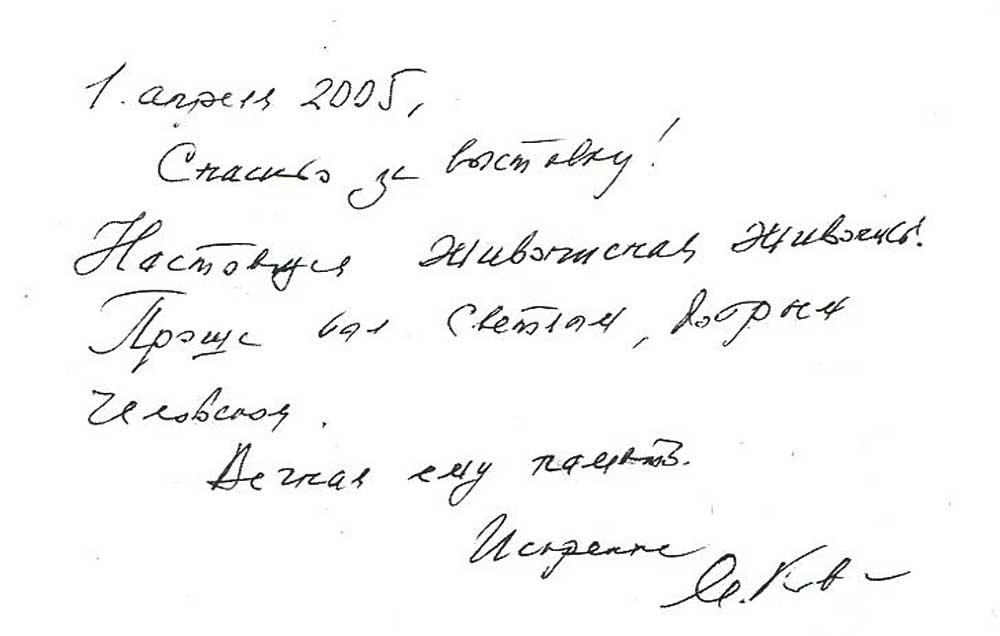 1. апреля 2005,
Спасибо за выставку!
Настоящая живописная живопись!
был светлым, добрым
человеком.
Вечная ему память.
Искренне